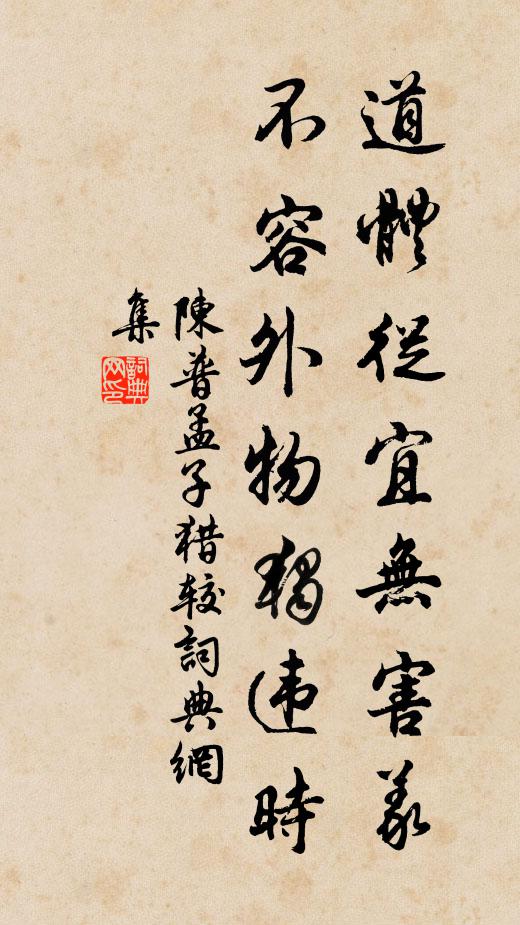 道體從宜無害義
不容外物獨违時
陳普孟子猎较詞典網
集
詞典网印